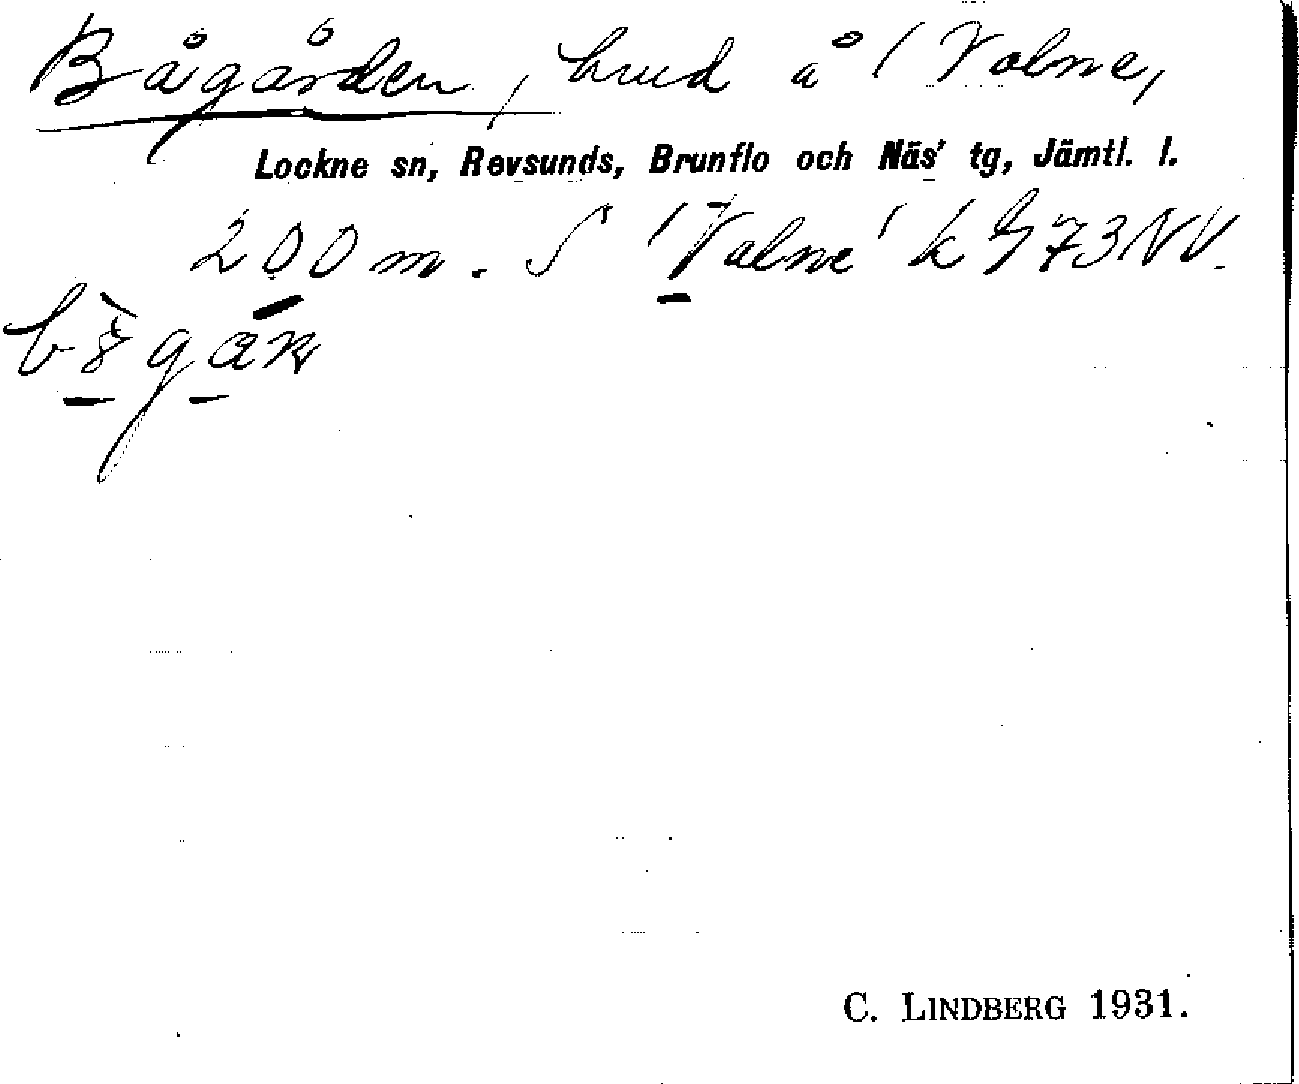 Bågården, hud å 1 Valne,
Lockne sn, Revsunds, Brunflo och Näs' tg, Jämtl. l.
200 m. S 'Valne' k 73 NV.
C. LINDBERG 1931.